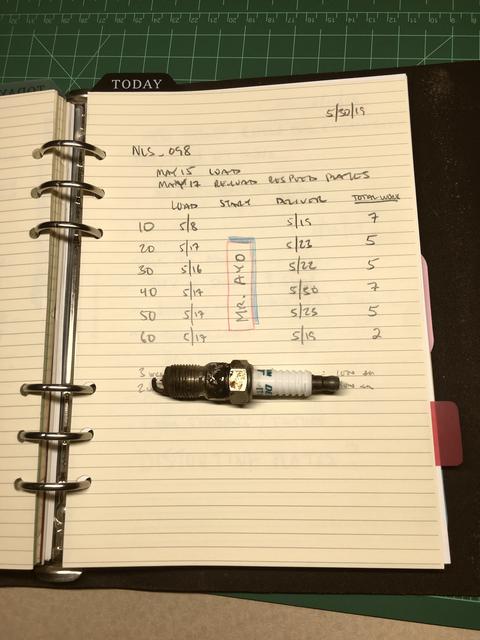 TODAY
5/30/19
NLS_098
MAY 15 LOAD
MAY 17 RELOAD RESPEED PLATES
LOAD START DELIVER TOTAL WORK
10 5/8 5/15 7
20 5/17 5/23 5
30 5/16 5/22 5
40 5/17 5/30 7
50 5/17 5/23 5
60 5/17 5/15 2
MR. AYO
3
2